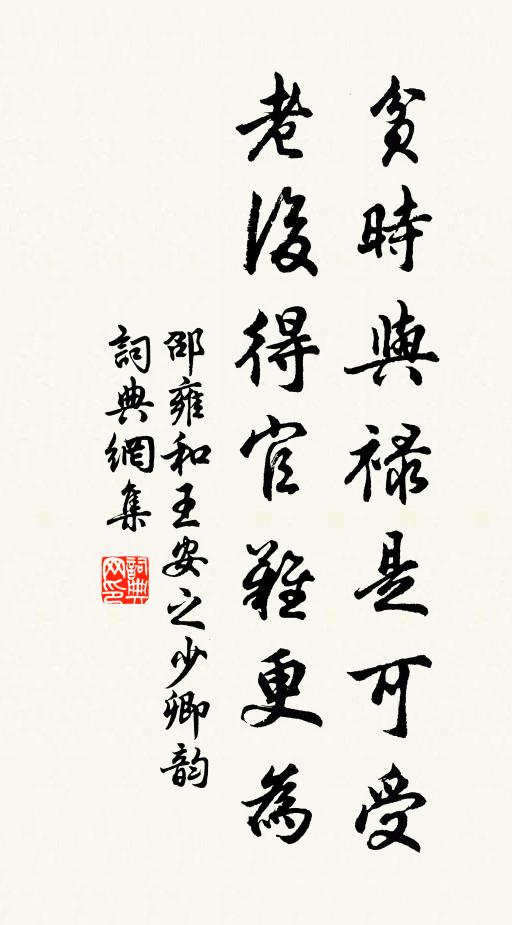 貧時與祿是可受
老後得官難更為
邵雍和王安之少卿韵
詞典網集
詞典网印